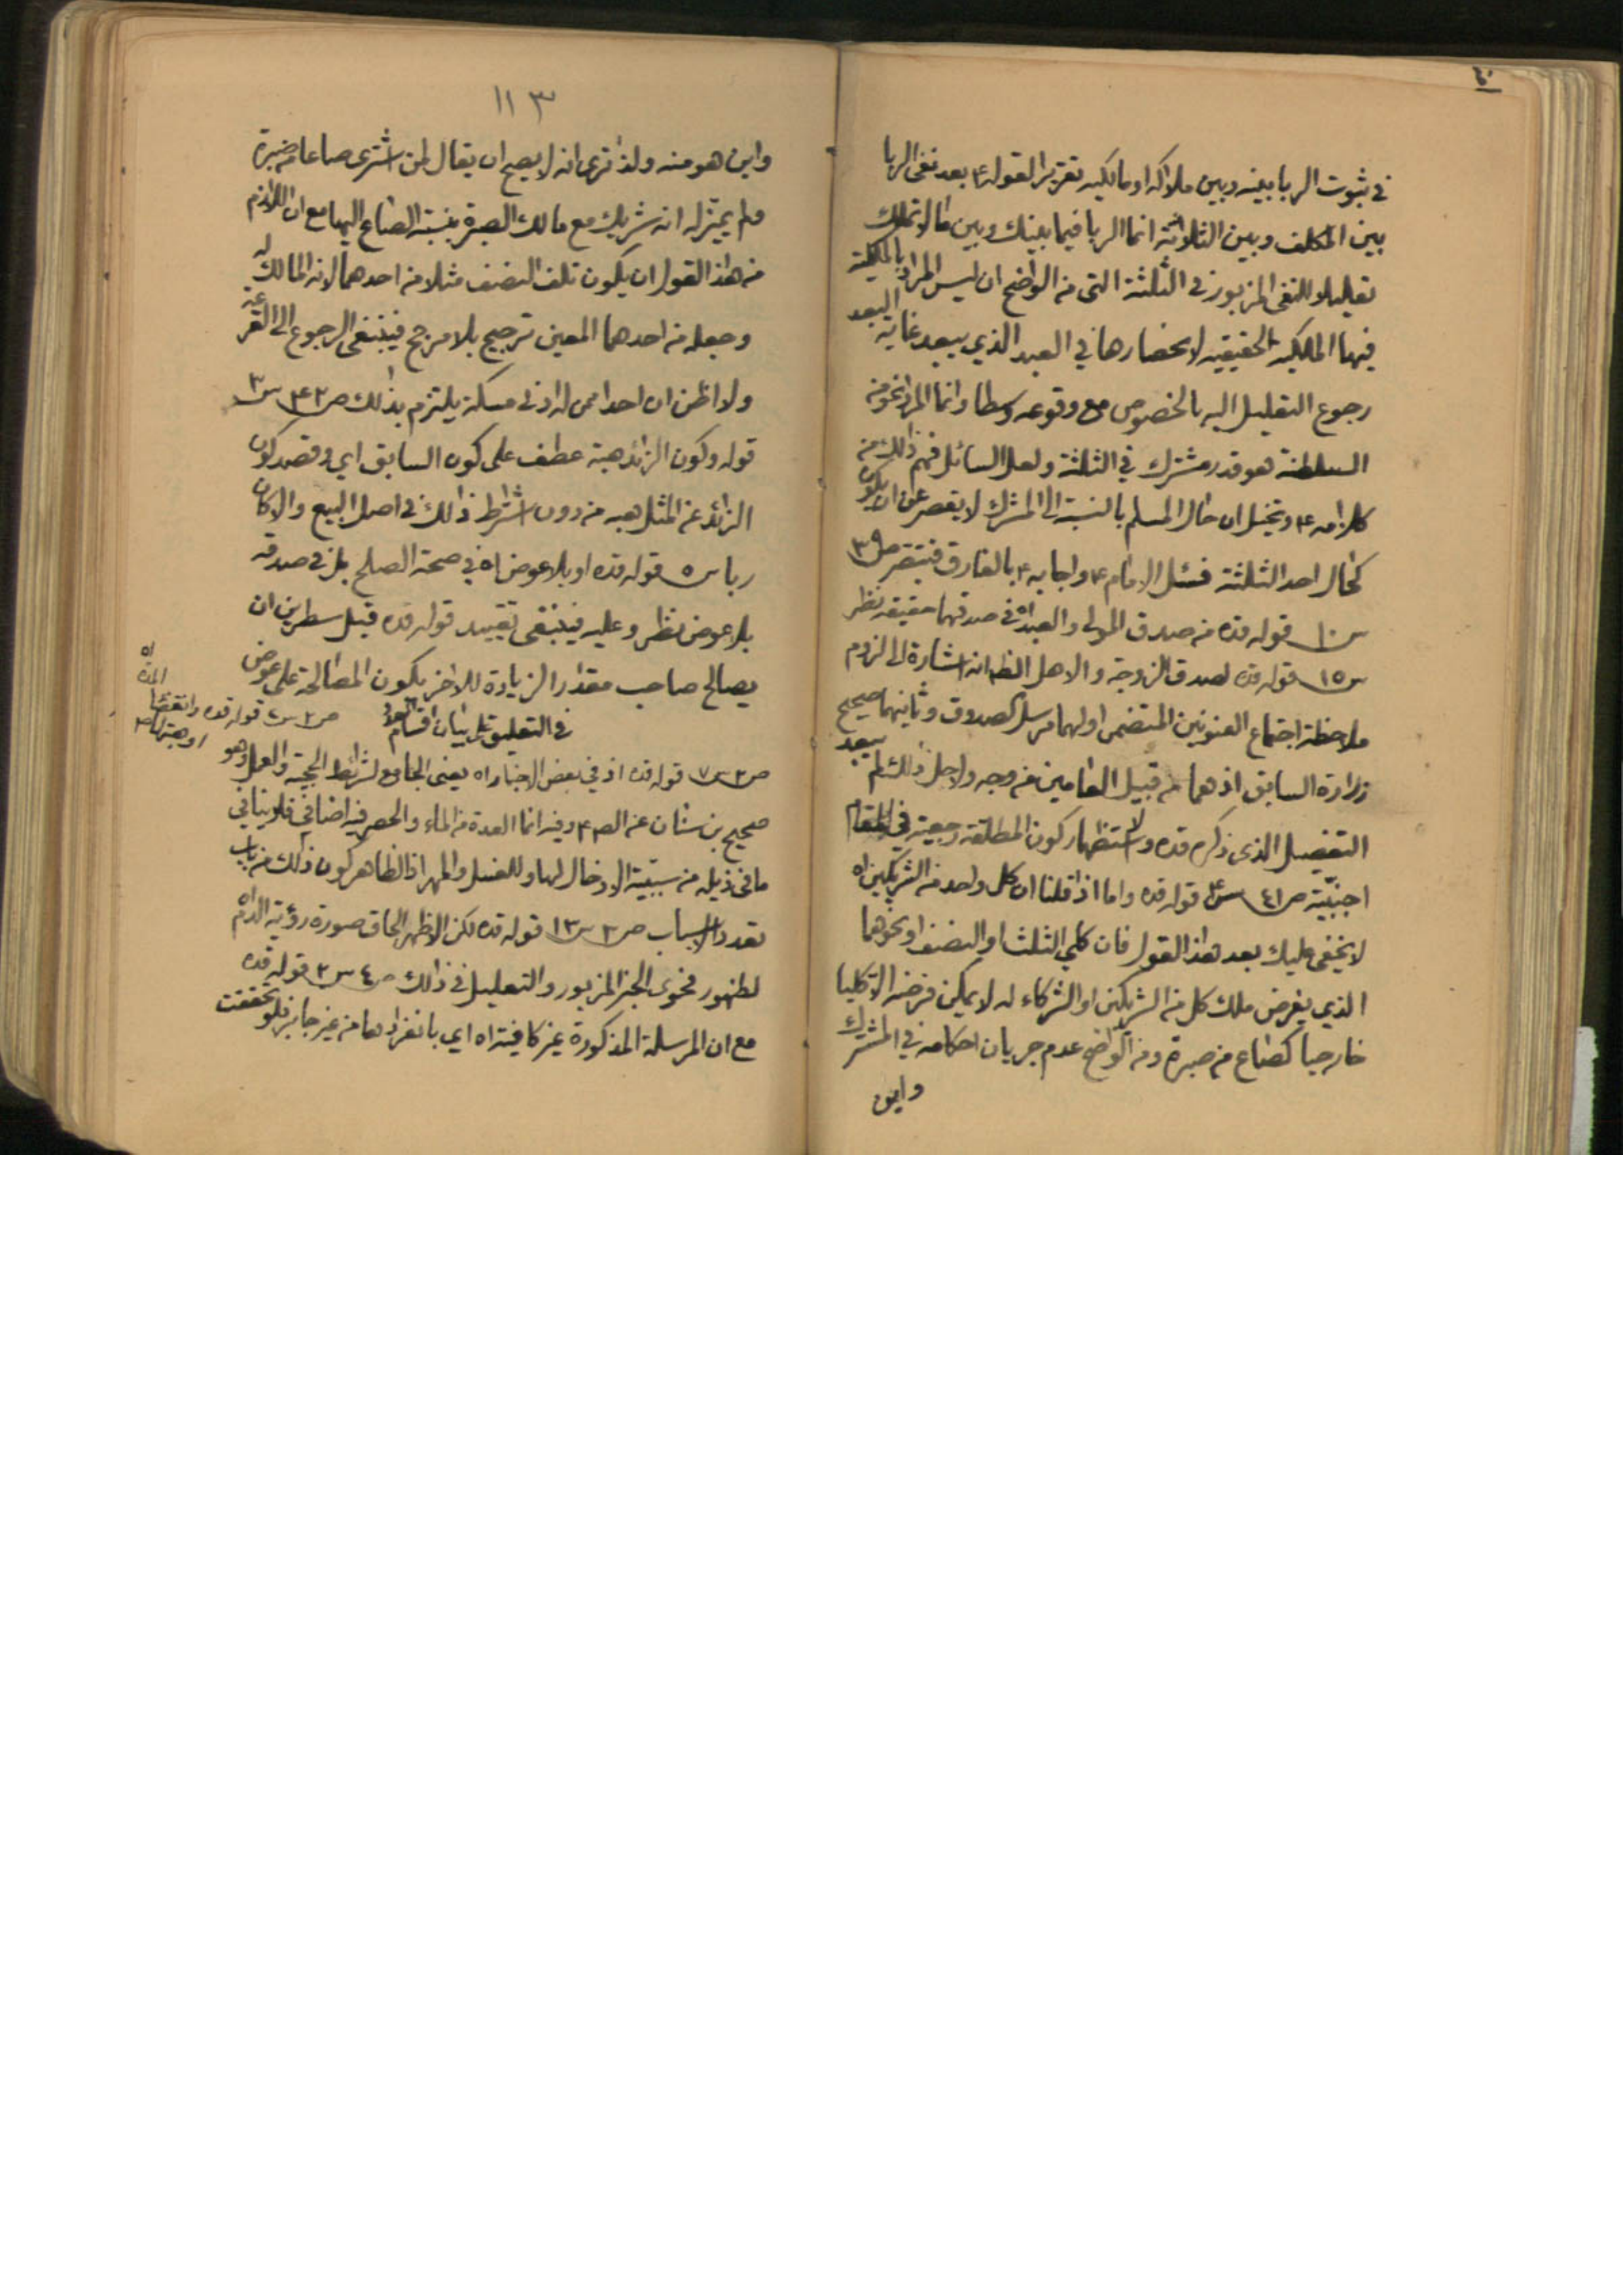 في ثبوت الربا بينه وبين ملاكه او مالكيه تقرير القوله ع بعد نفى الربا
بين المكلف وبين الثلاثة انما الربا فيما بينك وبين ما لا تملك
تعليلا للنفى المزبور في الثلثة التى من الواضح ان ليس المراد بالملكية
فيها الملكية الحقيقية لانحصارها في العبد الذي يبعد غاية البعد
رجوع التعليل اليه بالخصوص مع وقوعه وسطا وانما المراد نحو من
السلطنة هو قدر مشترك في الثلثة ولعل السائل فهم ذلك من
كلامه ع وتخيل ان حال المسلم بالنسبة الى المشرك لا يقصر عن ان يكون
كحال احد الثلثة فسئل الامام ع واجابه ع بالفارق فتبصر ص ٣٩
س ١٠ قوله قده من صدق المولى والعبد اه في صدقهما حقيقة نظر
س ١٥ قوله قده لصدق الزوجة والاهل الظ انه اشارة الى لزوم
ملاحظة اجتماع العنوانين المتضمن اولهما مرسل الصدوق وثانيهما صحيح
زرارة السابق اذ هما من قبيل العامين من وجه ولاجل ذلك لم يبعد
التفصيل الذى ذكره قده ولاستظهار كون المطلقة رجعية في المقام
اجنبيّة ص ٤١ س ٤ قوله قده واما اذا قلنا ان كل واحد من الشريكين اه
لا يخفى عليك بعد هذا القول فان كلي الثلث او النصف او نحوهما
الذي يفرض ملك كل من الشريكين او الشركاء له لا يمكن فرضه الا كليا
خارجيا كصاع من صبرة ومن الواضح عدم جريان احكامه في المشترك
واين
١١٣
واين هو منه ولذا ترى انه لا يصح ان يقال لمن اشترى صاعا من صبرة
ولم يميّز له انه شريك مع مالك الصبرة بنسبة الصاع اليها مع ان اللازم
من هذا القول ان يكون تلف النصف مثلا من احدهما لانه المالك له
وجعله من احدهما المعين ترجيح بلا مرجح فينبغى الرجوع الى القرعة
ولا اظن ان احدا ممن له ادنى مسكة يلتزم بذلك ص ٤٢ س ٣
قوله وكون الزائد هبة عطف على كون السابق اي وقصد كون
الزائد عن المثل هبه من دون اشتراط ذلك في اصل البيع والا كان
ربا س ٥ قوله قده او بلا عوض اه في صحة الصلح بل في صدقه
بلا عوض نظر وعليه فينبغى تقييد قوله قده قبل سطرين ان
يصالح صاحب مقدار الزيادة للاخر بكون المصالحة على عوض
في التعليق على بيان اقسام العدد
ص ٢ س ٦ قوله قده وانقضاء المدة اه
او هبتها ص
ص ٢ س ٧ قوله قده اذ في بعض الاخبار اه يعنى الجامع لشرائط الحجية والعمل وهو
صحيح بن سنان عن الص ع وفيه انما العدة من الماء والحصر فيه اضافي فلا ينافي
ما في ذيله من سببية الادخال لها وللغسل والمهر اذ الظاهر كون ذلك من باب
تعدد الاسباب ص ٢ س ١٣ قوله قده لكن الاظهر الحاق صورة رؤية الدم اه
لظهور فحوى الخبر المزبور والتعليل في ذلك ص ٤ س ٢ قوله قده
مع ان المرسلة المذكورة غير كافية اه اي بانفرادها من غير جابر فلو تحققت